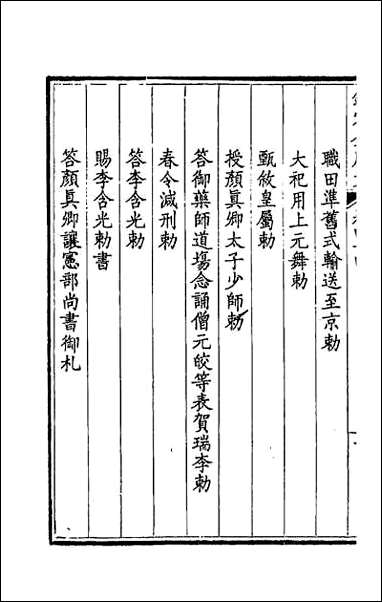 職田準舊式輸送至京勅
大祀用上元舞勅
甄敘皇屬勅
授顏眞卿太子少師勅
答御藥師道塲念誦僧元皎等表賀瑞李勅
春令減刑勅
答李含光勅
賜李含光勅書
答顏眞卿讓憲部尚書御札